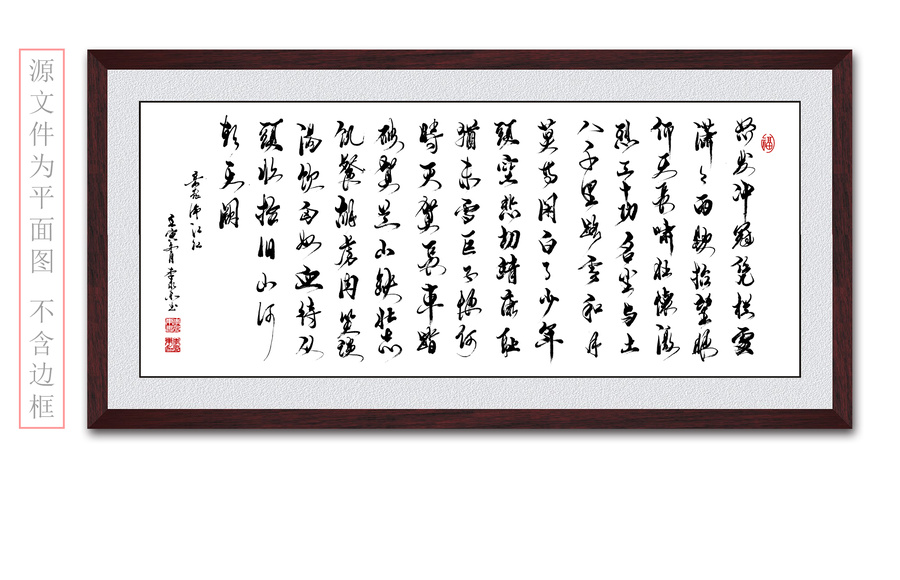 源文件为平面图 不含边框
怒发冲冠凭栏處
潇潇雨歇抬望眼
仰天長啸壮懷激
烈三十功名尘与土
八千里路雲和月
莫等闲白了少年
頭空悲切靖康耻
猶未雪臣子恨何
時灭駕長車踏
破贺兰山缺壮志
飢餐胡虏肉笑谈
渴飲匈奴血待从
頭收拾旧山河
朝天阙
岳飛满江红